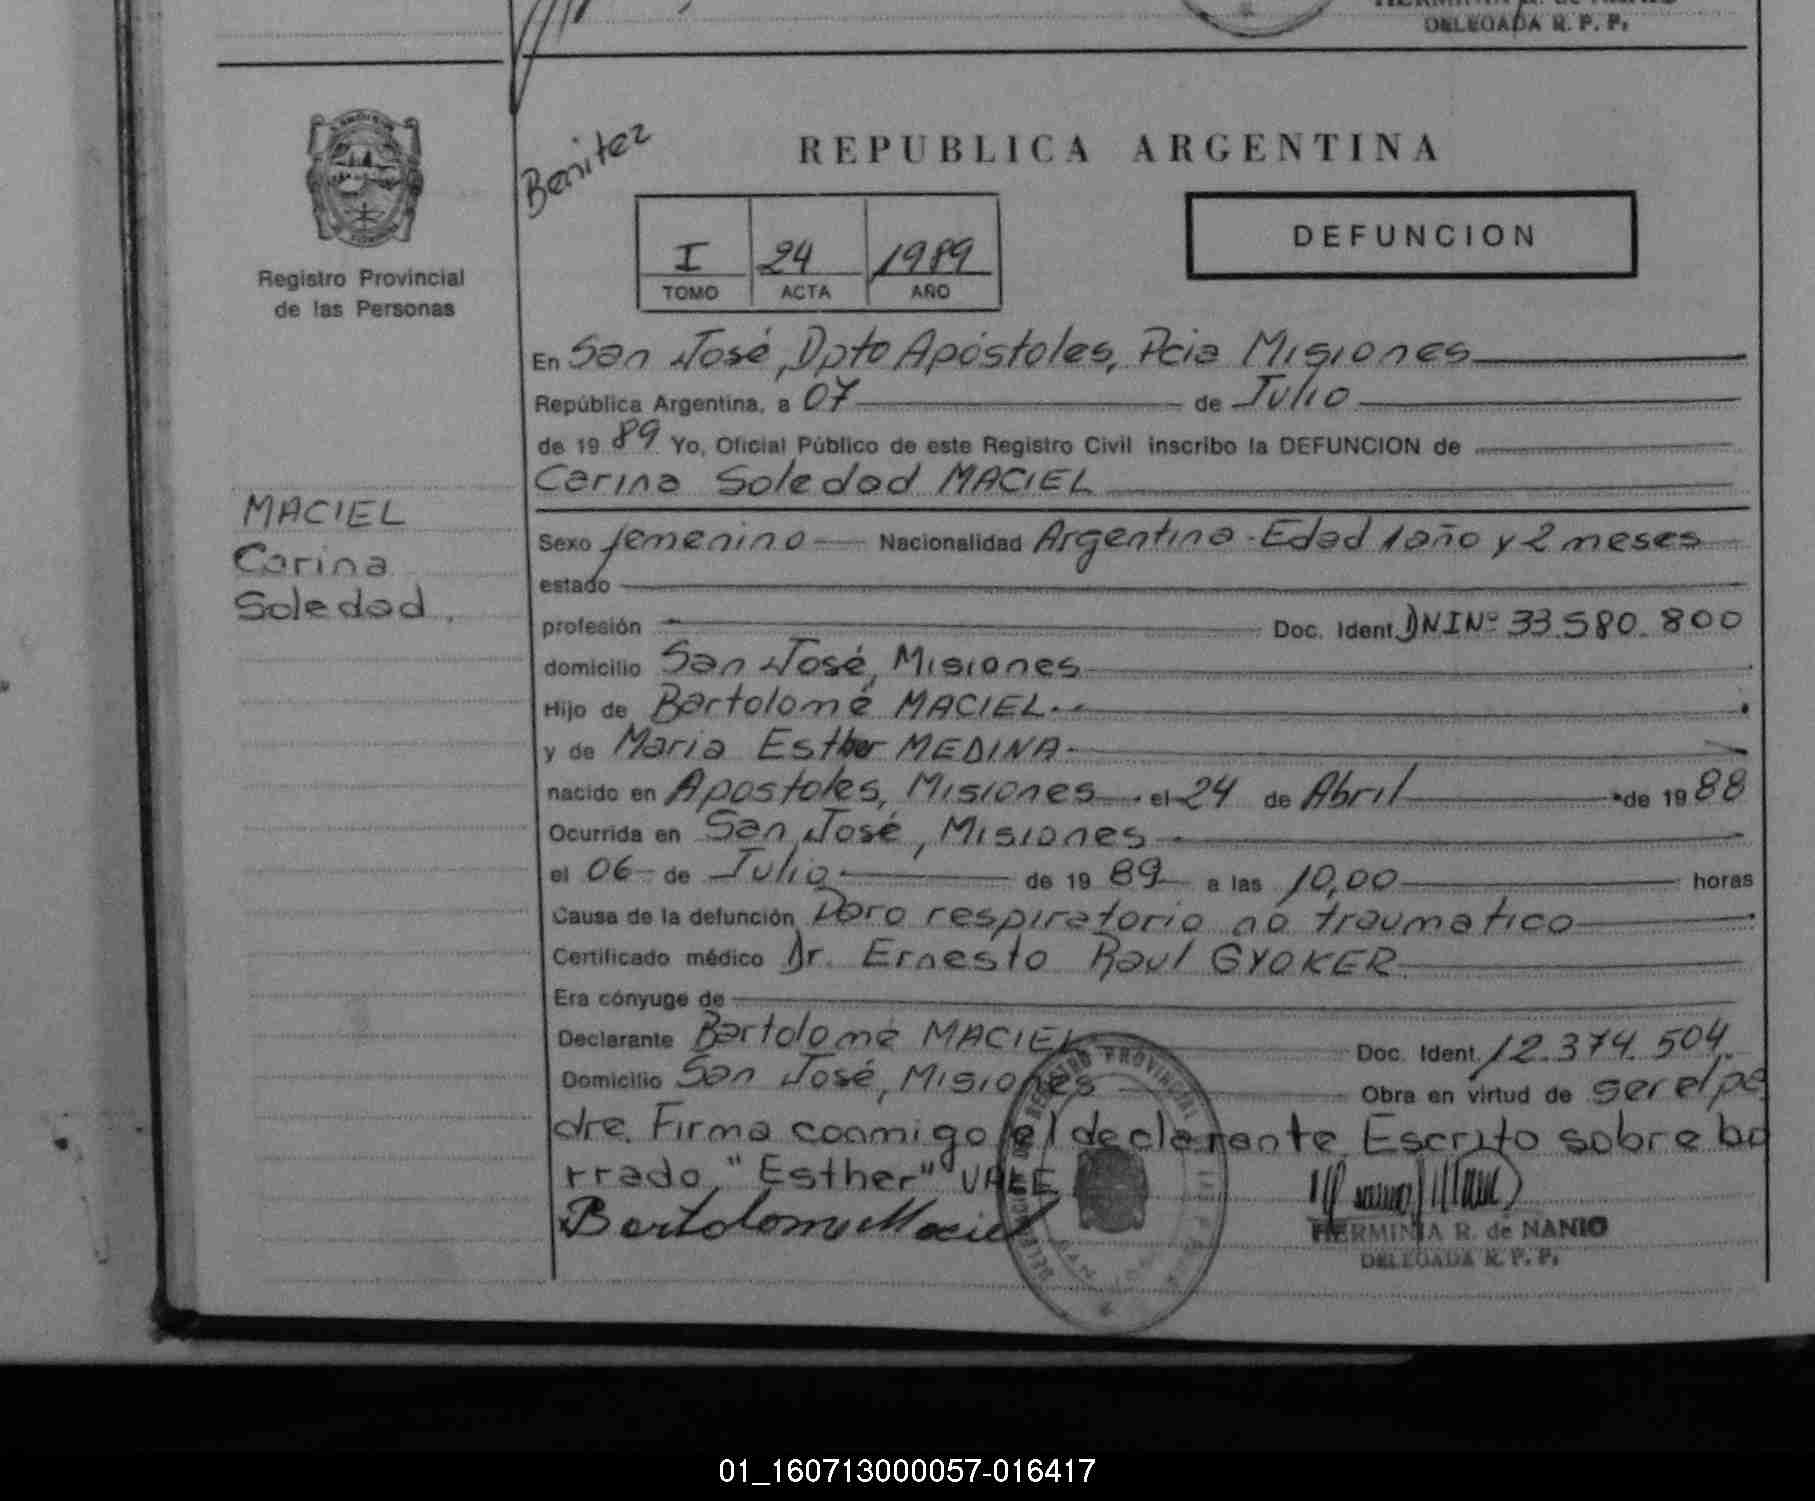 DELEGADA R. P. P.
Benitez
REPUBLICA ARGENTINA
I 24 1989
TOMO ACTA AÑO
DEFUNCION
Registro Provincial
de las Personas
MACIEL
Carina
Soledad
En San José, Dpto Apóstoles, Pcia Misiones
República Argentina, a 07 de Julio
de 19 89 Yo, Oficial Público de este Registro Civil inscribo la DEFUNCION de
Carina Soledad MACIEL
Sexo femenino Nacionalidad Argentina - Edad 1 año y 2 meses
estado
profesión Doc. Ident. DNI Nº 33.580.800
domicilio San José, Misiones
Hijo de Bartolomé MACIEL
y de Maria Esther MEDINA
nacido en Apostoles, Misiones el 24 de Abril de 19 88
Ocurrida en San José, Misiones
el 06 de Julio de 19 89 a las 10,00 horas
Causa de la defunción Paro respiratorio no traumatico
Certificado médico Dr. Ernesto Raul GYOKER
Era cónyuge de
Declarante Bartolomé MACIEL Doc. Ident. 12.374.504
Domicilio San José, Misiones Obra en virtud de ser el pa
dre. Firma conmigo el declarante. Escrito sobre bo
rrado "Esther" VALE
Bartolome Maciel
HERMINIA R. de NANIO
DELEGADA R. P. P.
01_160713000057-016417